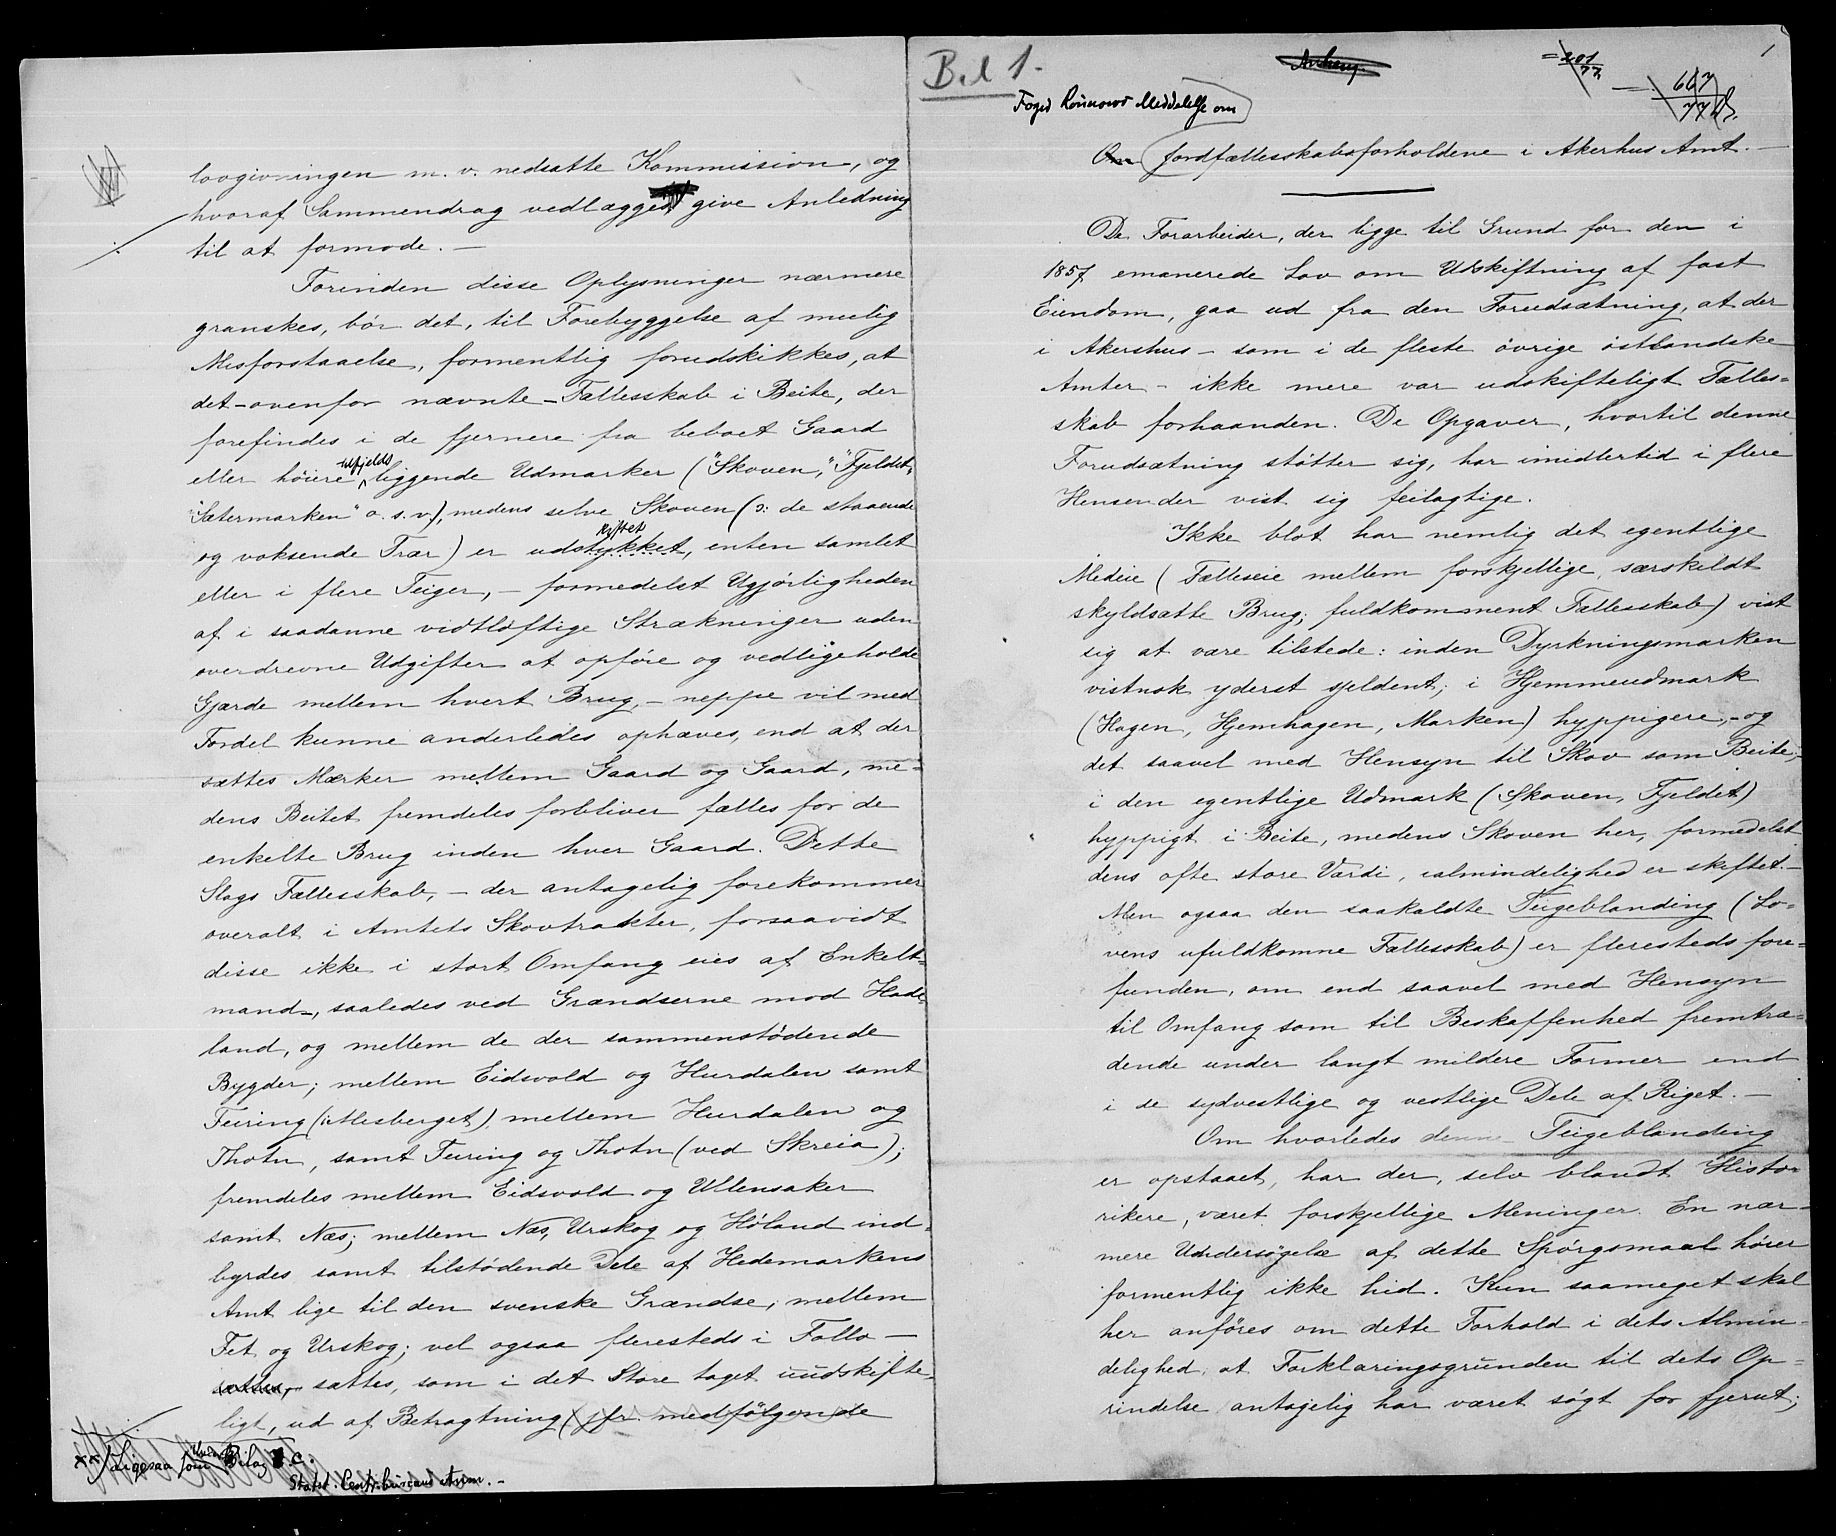 lovgivningen m. v. nedsatte Kommission, og
hvoraf Sammendrag vedlægges give Anledning
til at formode. —
Forinden disse Oplysninger nærmere
granskes, bör det, til Forebyggelse af mulig
Misforstaaelse, formentlig forudskikkes, at
det – ovenfor nævnte – Fællesskab i Beite, der
forefindes i de fjernere fra beboet Gaard
eller höiere tilfjelds liggende Udmarker ("Skoven," "Fjeldet,"
"Sætermarken" o. s. v.), medens selve Skoven (ɔ: de staaende
og voksende Trær) er udstykket, enten samlet
skiftet
eller i flere Teiger, – formedelst Ugjörligheden
af i saadanne vidtlöftige Strækninger uden
overdrevne Udgifter at opföre og vedligeholde
Gjærde mellem hvert Brug, – neppe vil med
Fordel kunne anderledes ophæves, end at der
sættes Mærker mellem Gaard og Gaard, me-
dens Beitet fremdeles forbliver fælles for de
enkelte Brug inden hver Gaard. Dette
Slags Fællesskab, – der antagelig forekommer
overalt i Amtets Skovtrakter, forsaavidt
disse ikke i stort Omfang eies af Enkelt-
mand –, saaledes ved Grændserne mod Hade-
land, og mellem de der sammenstödende
Bygder; mellem Eidsvold og Hurdalen samt
Feiring (i Misberget), mellem Hurdalen og
Thotn, samt Feiring og Thotn (ved Skreia);
fremdeles mellem Eidsvold og Ullensaker
samt Næs; mellem Næs, Urskog og Höland ind-
byrdes samt tilstödende Dele af Hedemarkens
Amt lige til den svenske Grændse; mellem
Fet og Urskog; vel ogsaa fleresteds i Follo –
sættes, som i det Store taget uudskifte-
ligt, ud af Betragtning (jfr. medfölgende
xx) Ligesaa som Bilag C.
Statist. Centr.bureaus Anm. –
Bil 1.
201/77
667/77
1
Foged Meddelelse om
Om Jordfællesskabsforholdene i Akerhus Amt. –
De Forarbeider, der ligge til Grund for den i
1857 emanerede Lov om Udskiftning af fast
Eiendom, gaa ud fra den Forudsætning, at der
i Akershus – som i de fleste övrige östlandske
Amter – ikke mere var udskifteligt Fælles-
skab forhaanden. De Opgaver, hvortil denne
Forudsætning stötter sig, har imidlertid i flere
Henseender vist sig feilagtige.
Ikke blot har nemlig det egentlige
Medeie (Fælleseie mellem forskjellige, særskildt
skyldsatte Brug; fuldkomment Fællesskab) vist
sig at være tilstede: inden Dyrkningsmarken
vistnok yderst sjeldent; i Hjemmeudmark
(Hagen, Hjemhagen, Marken) hyppigere, – og
det saavel med Hensyn til Skov som Beite; –
i den egentlige Udmark (Skoven, Fjeldet)
hyppigt i Beite, medens Skoven her, formedelst
dens ofte store Værdi, i almindelighed er skiftet. –
Men ogsaa den saakaldte Teigeblanding (Lo-
vens ufuldkomne Fællesskab) er fleresteds fore-
funden, om end saavel med Hensyn
til Omfang som til Beskaffenhed fremtræ-
dende under langt mildere Former end
i de sydvestlige og vestlige Dele af Riget. –
Om hvorledes denne Teigeblanding
er opstaaet, har der, selv blandt Histo-
rikere, været forskjellige Meninger. En nær-
mere Undersögelse af dette Spörgsmaal hörer
formentlig ikke hid. Kun saameget skal
her anföres om dette Forhold i dets Almin-
delighed, at Forklaringsgrunden til dets Op-
rindelse antagelig har været sögt for fjernt;